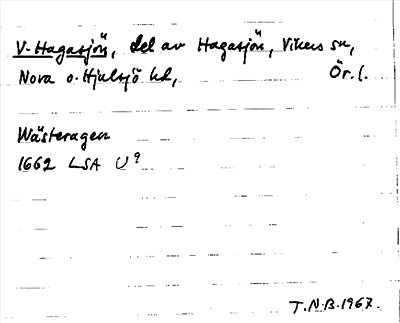 V. Hagasjön, del av Hagasjön, Vikers sn,
Nora o. Hjulsjö hd, Ör. l.
Wästeragen
1662 LSA U9
T.N.B. 1967.